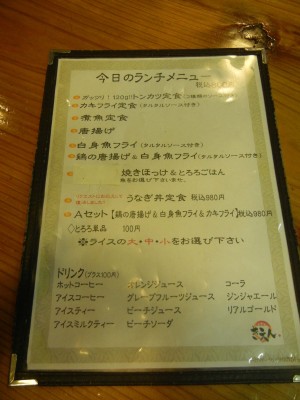 今日のランチメニュー
税込
ガッツリ！130gトンカツ定食
カキフライ定食(タルタルソース付き)
煮魚定食
唐揚げ
白身魚フライ(タルタルソース付き)
鶏の唐揚げ&白身魚フライ(タルタルソース付き)
焼きほっけ&とろろごはん
魚をお選び下さいませ。
うなぎ丼定食 税込980円
Aセット【鶏の唐揚げ&白身魚フライ&カキフライ】税込980円
◇とろろ単品 100円
※ライスの大・中・小をお選び下さい
ドリンク(グラス100円)
ホットコーヒー オレンジジュース コーラ
アイスコーヒー グレープフルーツジュース ジンジャエール
アイスティー ピーチジュース リアルゴールド
アイスミルクティー ピーチソーダ